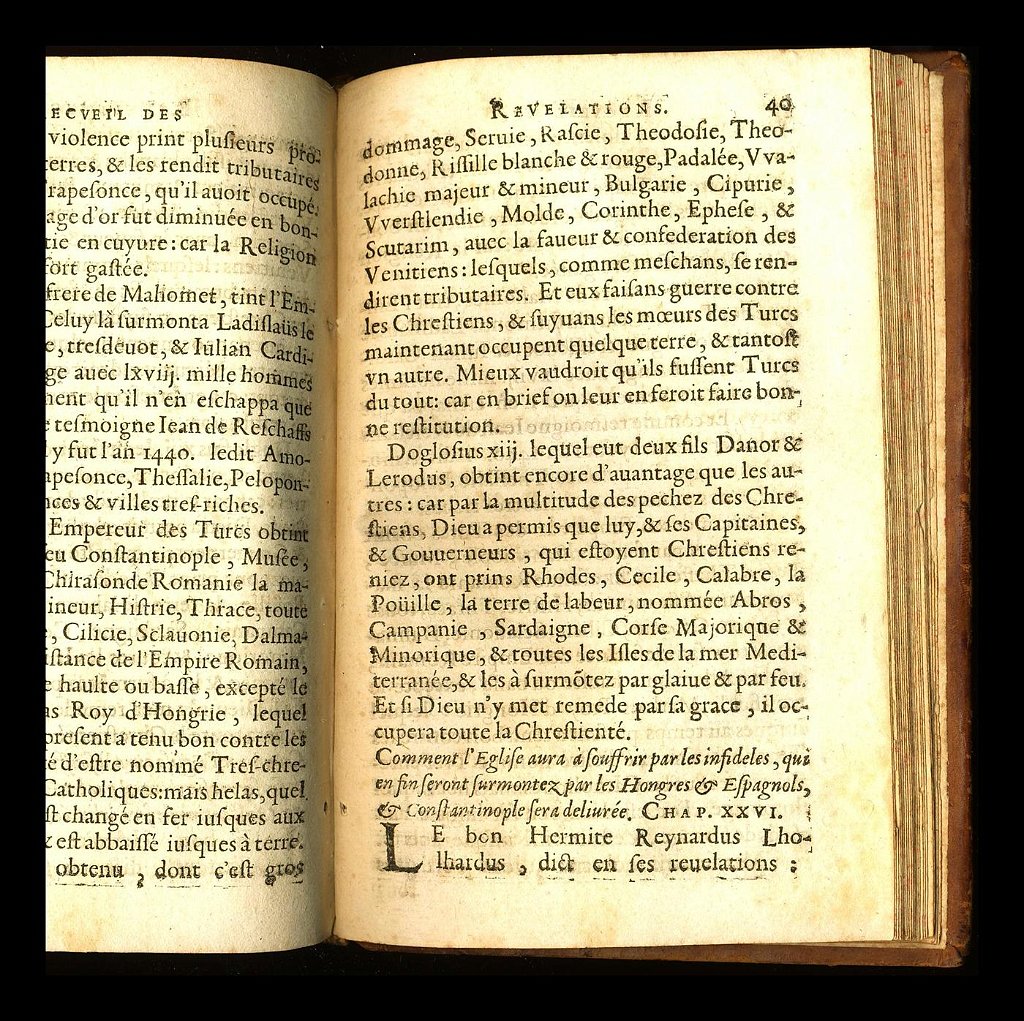 ECVEIL DES
violence print pluſieurs pro-
terres, & les rendit tributaires
rapeſonce, qu'il auoit occupé.
age d'or fut diminuée en bon-
tie en cuyure: car la Religion
fort gaſtée.
frere de Mahomet, tint l'Em-
Celuy là ſurmonta Ladiſlaüs le
e, treſdeuot, & Iulian Cardi-
ge auec lxviij. mille hommes
ment qu'il n'en eſchappa que
e teſmoigne Iean de Reſchaffs
y fut l'an 1440. ledit Amo-
apeſonce, Theſſalie, Pelopon-
nces & villes treſ-riches.
Empereur des Turcs obtint
eu Conſtantinople, Muſée,
Chiraſonde Romanie la ma-
ineur, Hiſtrie, Thrace, toute
, Cilicie, Sclauonie, Dalma-
iſtance de l'Empire Romain,
e haulte ou baſſe, excepté le
as Roy d'Hongrie, lequel
preſent a tenu bon contre les
é d'eſtre nommé Treſ-chre-
Catholiques: mais helas, quel
ſt changé en fer iuſques aux
& eſt abbaiſſé iuſques à terre.
obtenu, dont c'eſt gros
REVELATIONS. 40
dommage, Seruie, Raſcie, Theodoſie, Theo-
donne, Riſſille blanche & rouge, Padalée, Vva-
lachie majeur & mineur, Bulgarie, Cipurie,
Vverſtlendie, Molde, Corinthe, Epheſe, &
Scutarim, auec la faueur & confederation des
Venitiens: leſquels, comme meſchans, ſe ren-
dirent tributaires. Et eux faiſans guerre contre
les Chreſtiens, & ſuyuans les mœurs des Turcs
maintenant occupent quelque terre, & tantoſt
vn autre. Mieux vaudroit qu'ils fuſſent Turcs
du tout: car en brief on leur en feroit faire bon-
ne reſtitution.
Dogloſius xiij. lequel eut deux fils Danor &
Lerodus, obtint encore d'auantage que les au-
tres: car par la multitude des pechez des Chre-
ſtiens, Dieu a permis que luy, & ſes Capitaines,
& Gouuerneurs, qui eſtoyent Chreſtiens re-
niez, ont prins Rhodes, Cecile, Calabre, la
Poüille, la terre de labeur, nommée Abros,
Campanie, Sardaigne, Corſe Majorique &
Minorique, & toutes les Iſles de la mer Medi-
terranée, & les à ſurmõtez par glaiue & par feu.
Et ſi Dieu n'y met remede par ſa grace, il oc-
cupera toute la Chreſtienté.
Comment l'Egliſe aura à ſouffrir par les infideles, qui
en fin ſeront ſurmontez par les Hongres & Eſpagnols,
& Conſtantinople ſera deliurée. CHAP. XXVI.
LE bon Hermite Reynardus Lho-
lhardus, dict en ſes reuelations: